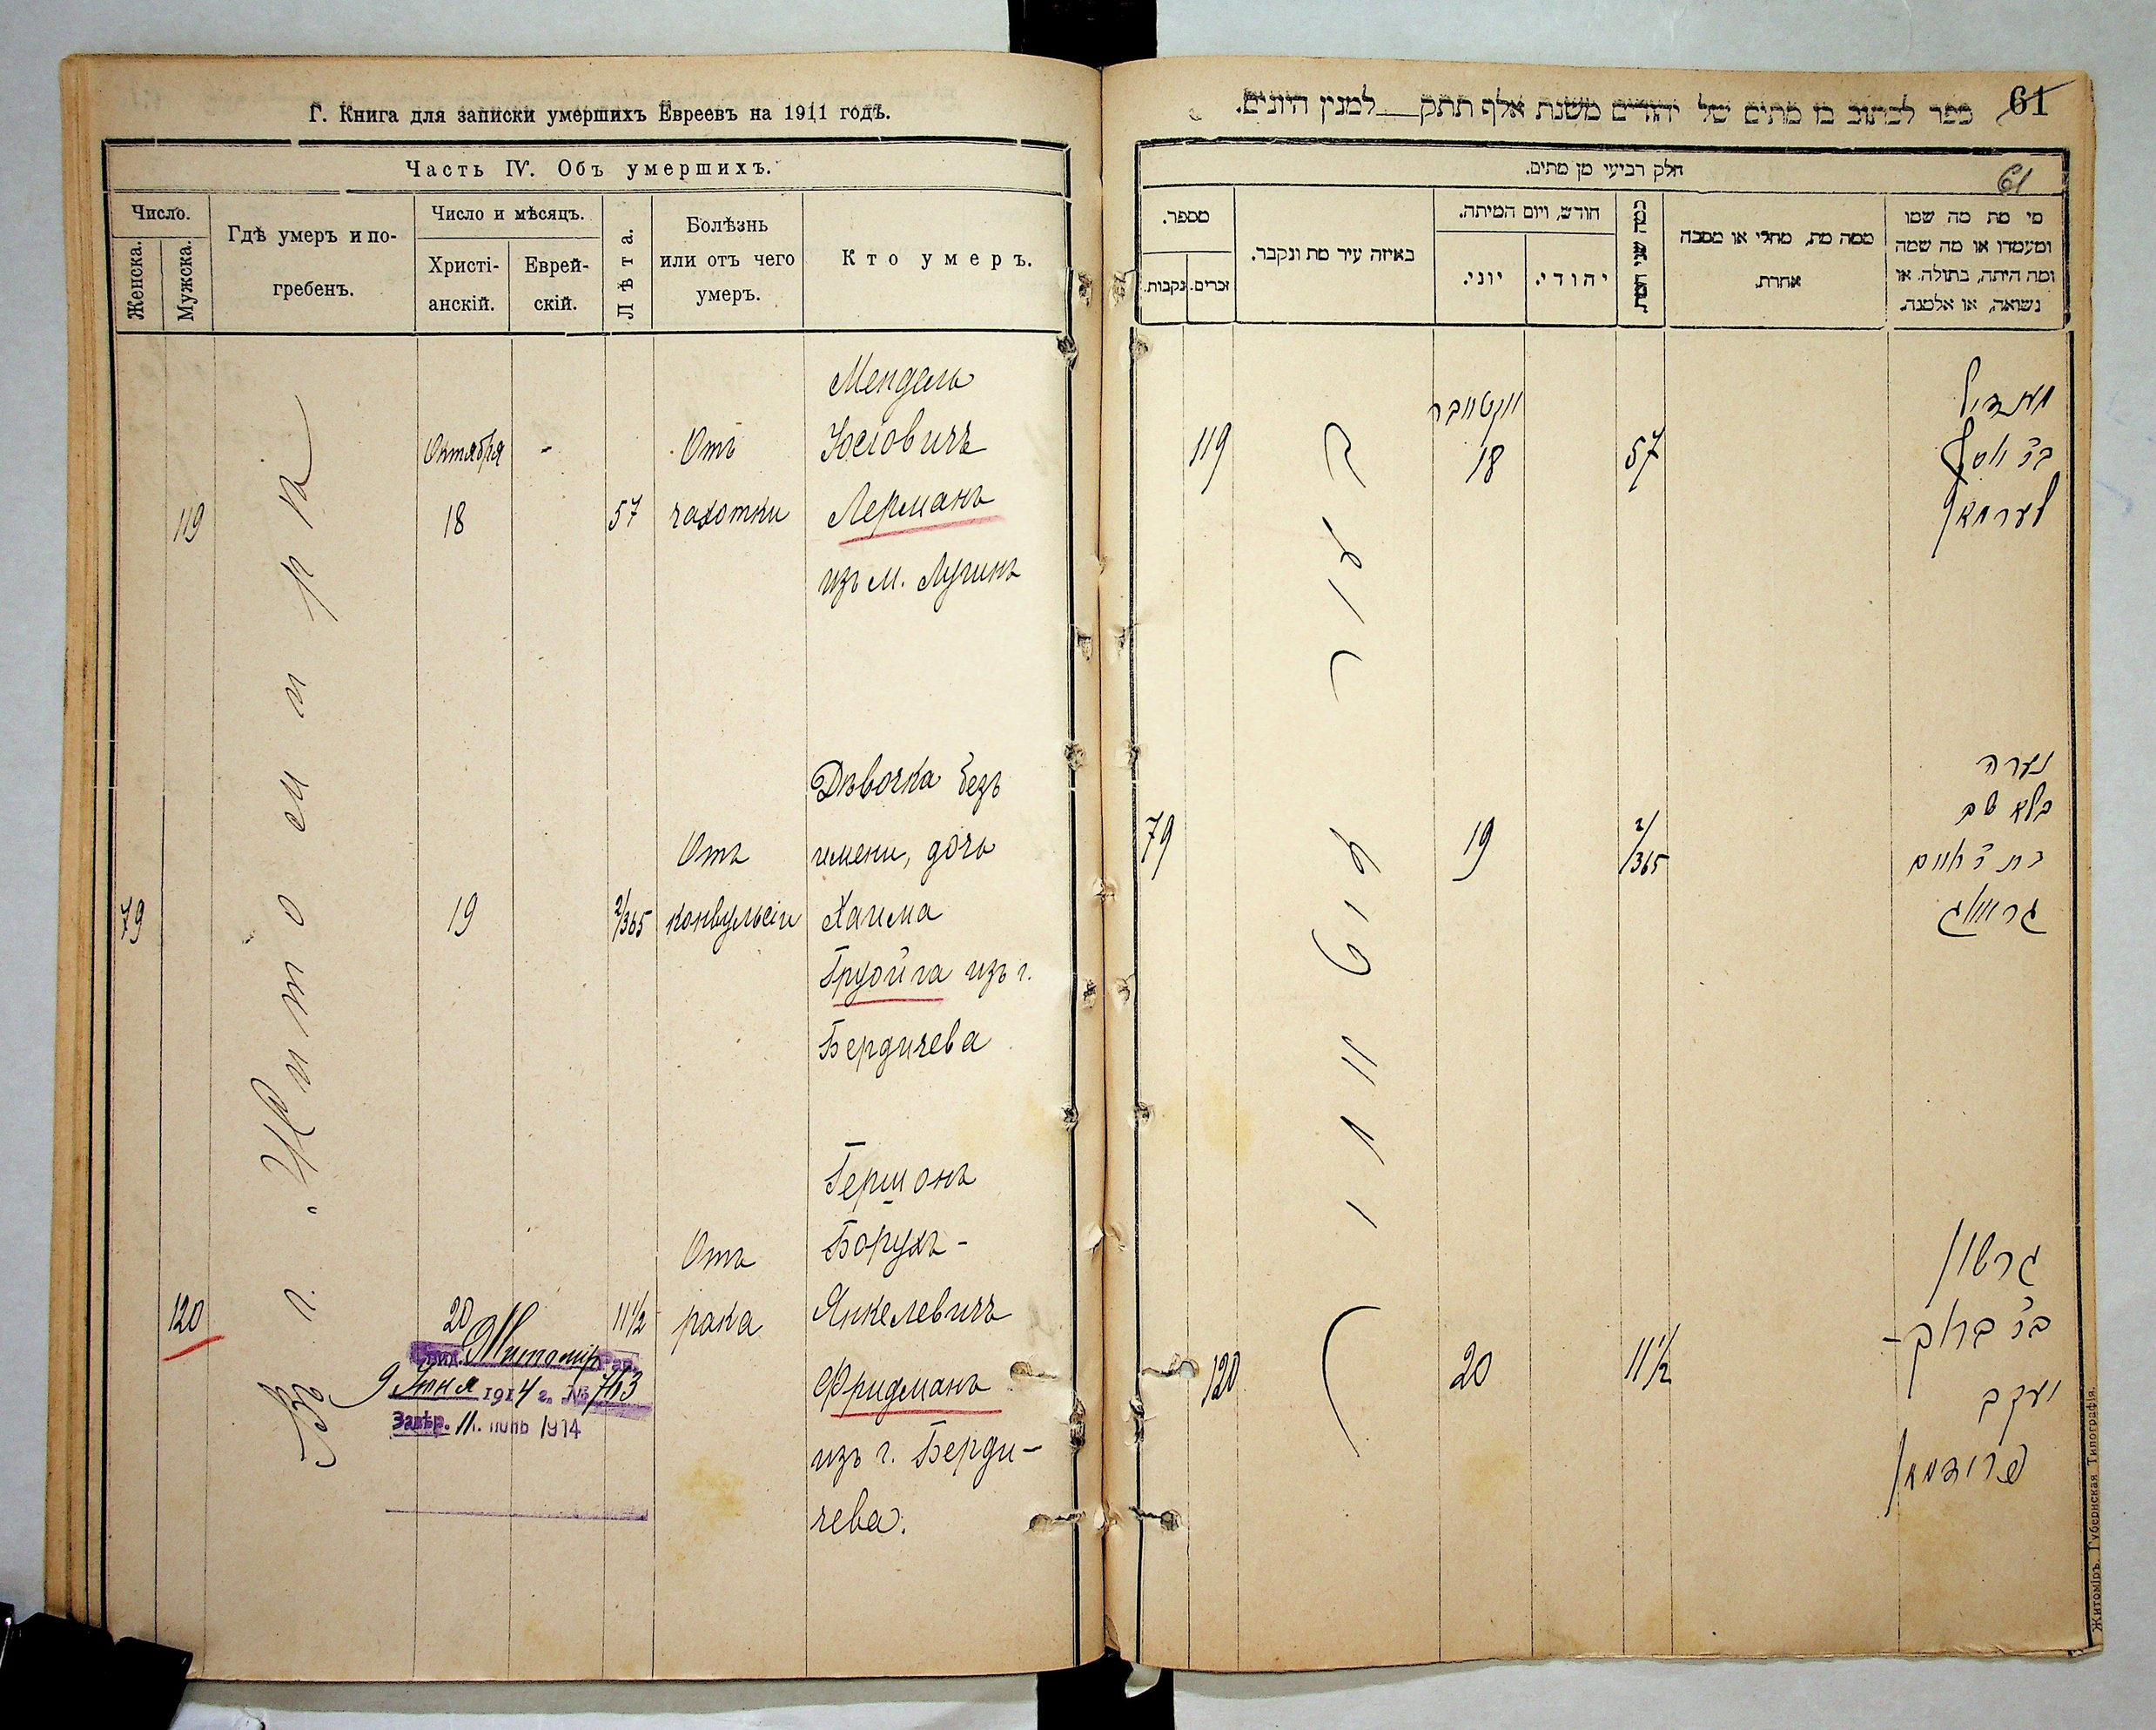 Г. Книга для записки умершихъ Евреевъ на 1911 годъ.
Часть IV. Объ умершихъ.
Число.
Женска.
Мужска.
Гдѣ умеръ и по-
гребенъ.
Число и мѣсяцъ.
Христі-
анскій.
Еврей-
скій.
Лѣта.
Болѣзнь
или отъ чего
умеръ.
Кто умеръ.
Въ г. Житомирѣ
119
Октября
18
-
57
Отъ
чахотки
Мендель
Іосіовичъ
Лерманъ
изъ м. Лугинъ
79
19
2/365
Отъ
конвульсіи
Дѣвочка безъ
имени, дочь
Хаима
Бруойга изъ г.
Бердичева
120
20
11½
Отъ
рака
Гершонъ
Борухъ-
Янкелевичъ
Фридманъ
изъ г. Берди-
чева.
Житомір
9 Іюня 1914 г. № 763
Завѣр. 11. июнь 1914
ספר לכתוב בו מתים של יהודים משנת אלף תתק למנין היונים.
61
חלק רביעי מן מתים.
61
מספר.
נקבות.
זכרים.
באיזה עיר מת ונקבר.
חודש, ויום המיתה.
יוני.
יהודי.
כמה שני המת.
ממה מת, מחלי או מסבה
אחרת.
מי מת מה שמו
ומעמדו או מה שמה
ומה היתה, בתולה, או
נשואה, או אלמנה.
119
אקטאבר
18
57
מענדיל
לערמאן
79
19
2/365
נערה
בלא שם
120
20
11½
גרשון
יעקב
פרידמאן
Житоміръ. Губернская Типографія.